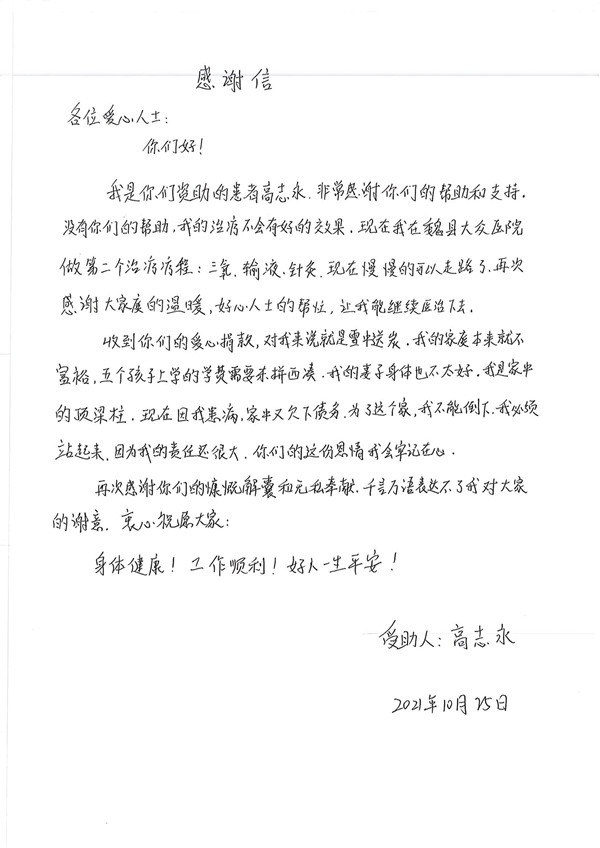 感谢信
各位爱心人士：
你们好！
我是你们资助的患者高志永．非常感谢你们的帮助和支持．
没有你们的帮助，我的治疗不会有好的效果．现在我在魏县大众医院
做第二个治疗疗程：三氧．输液．针灸．现在慢慢的可以走路了．再次
感谢大家庭的温暖，好心人士的帮忙，让我能继续医治下去．
收到你们的爱心捐款，对我来说就是雪中送炭．我的家庭本来就不
富裕，五个孩子上学的学费需要东拼西凑．我的妻子身体也不太好，我是家中
的顶梁柱．现在因我患病，家中又欠下债务．为了这个家，我不能倒下．我必须
站起来．因为我的责任还很大．你们的这份恩情我会牢记在心．
再次感谢你们的慷慨解囊和无私奉献．千言万语表达不了我对大家
的谢意．衷心祝愿大家：
身体健康！工作顺利！好人一生平安！
受助人：高志永
2021年10月25日